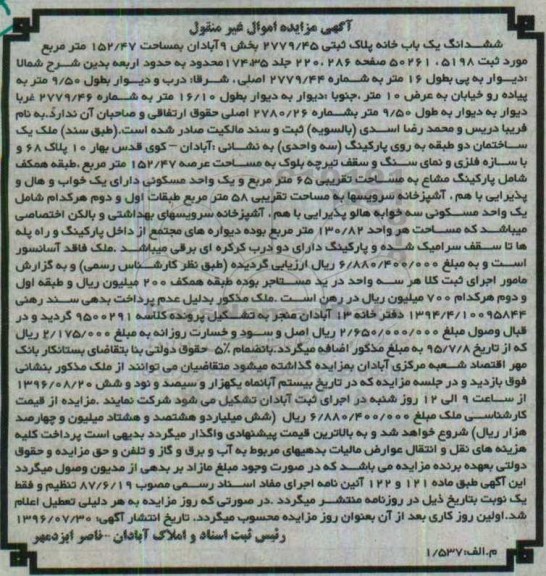 آگهی مزایده اموال غیر منقول
ششدانگ یک باب خانه پلاک ثبتی ۲۷۷۹/۴۵ بخش ۹ آبادان بمساحت ۱۵۲/۴۷ متر مربع
مورد ثبت ۵۱۹۸ ، ۵۰۲۶۱ صفحه ۲۸۶ ، ۲۲۰ جلد ۱۷۴،۳۵ محدود به حدود اربعه بدین شرح شمالا
:دیوار به پی بطول ۱۶ متر به شماره ۲۷۷۹/۴۴ اصلی ، شرقا: درب و دیوار بطول ۹/۵۰ متر به
پیاده رو خیابان به عرض ۱۰ متر ،جنوبا :دیوار به دیوار بطول ۱۶/۱۰ متر به شماره ۲۷۷۹/۴۶ غربا
دیوار به دیوار به طول ۹/۵۰ متر بشماره ۲۷۸۰/۲۶ اصلی حقوق ارتفاقی و صاحبان آن ندارد.به نام
فریبا دریس و محمد رضا اسدی (بالسویه) ثبت و سند مالکیت صادر شده است.(طبق سند) ملک یک
ساختمان دو طبقه به روی پارکینگ (سه واحدی) به نشانی :آبادان – کوی قدس بهار ۱۰ پلاک ۶۸ و
با سازه فلزی و نمای سنگ و سقف تیرچه بلوک به مساحت عرصه ۱۵۲/۴۷ متر مربع ،طبقه همکف
شامل پارکینگ مشاع به مساحت تقریبی ۶۵ متر مربع و یک واحد مسکونی دارای یک خواب و هال و
پذیرایی با هم ، آشپزخانه سرویسها به مساحت تقریبی ۵۸ متر مربع طبقات اول و دوم هرکدام شامل
یک واحد مسکونی سه خوابه هالو پذیرایی با هم ، آشپزخانه سرویسهای بهداشتی و بالکن اختصاصی
میباشد که مساحت هر واحد ۱۳۰/۸۲ متر مربع بوده دیواره های مجتمع از داخل پارکینگ و راه پله
ها تا سقف سرامیک شده و پارکینگ دارای دو درب کرکره ای برقی میباشد .ملک فاقد آسانسور
است و به مبلغ ۶/۸۸۰/۴۰۰/۰۰۰ ریال ارزیابی گردیده (طبق نظر کارشناس رسمی) و به گزارش
مامور اجرای ثبت کلا هر سه واحد در ید مستاجر بوده طبقه همکف ۲۰۰ میلیون ریال و طبقه اول
و دوم هرکدام ۷۰۰ میلیون ریال در رهن است .ملک مذکور بدلیل عدم پرداخت بدهی سند رهنی
۱۳۹۴/۴/۱۰۰۹۵۸۴۴ دفتر خانه ۱۳ آبادان منجر به تشکیل پرونده کلاسه ۹۵۰۰۲۹۱ گردید و در
قبال وصول مبلغ ۲/۶۵۰/۰۰۰/۰۰۰ ریال اصل و سود و خسارت روزانه به مبلغ ۲/۱۷۵/۰۰۰ ریال
که از تاریخ ۹۵/۷/۸ به مبلغ مذکور اضافه میگردد.بانضمام ۵٪ حقوق دولتی بنا بتقاضای بستانکار بانک
مهر اقتصاد شعبه مرکزی آبادان بمزایده گذاشته میشود متقاضیان می توانند از ملک مذکور بنشانی
فوق بازدید و در جلسه مزایده که در تاریخ بیستم آبانماه یکهزار و سیصد و نود و شش ۱۳۹۶/۰۸/۲۰
از ساعت ۹ الی ۱۲ روز شنبه در اجرای ثبت آبادان تشکیل می شود شرکت نمایند .مزایده از قیمت
کارشناسی ملک مبلغ ۶/۸۸۰/۴۰۰/۰۰۰ ریال (شش میلیاردو هشتصد و هشتاد میلیون و چهارصد
هزار ریال) شروع خواهد شد و به بالاترین قیمت پیشنهادی واگذار میگردد بدیهی است پرداخت کلیه
هزینه های نقل و انتقال عوارض مالیات بدهیهای مربوط به آب و برق و گاز و تلفن و حق مزایده و حقوق
دولتی بعهده برنده مزایده می باشد که در صورت وجود مبلغ مازاد بر بدهی از مدیون وصول میگردد
این آگهی طبق ماده ۱۲۱ و ۱۲۲ آئین نامه اجرای مفاد اسناد رسمی مصوب ۸۷/۶/۱۹ تنظیم و فقط
یک نوبت بتاریخ ذیل در روزنامه منتشر میگردد .در صورتی که روز مزایده به هر دلیلی تعطیل اعلام
شد.اولین روز کاری بعد از آن بعنوان روز مزایده محسوب میگردد. تاریخ انتشار آگهی: ۱۳۹۶/۰۷/۳۰
رئیس ثبت اسناد و املاک آبادان –ناصر ایزدمهر
م.الف:۱/۵۳۷